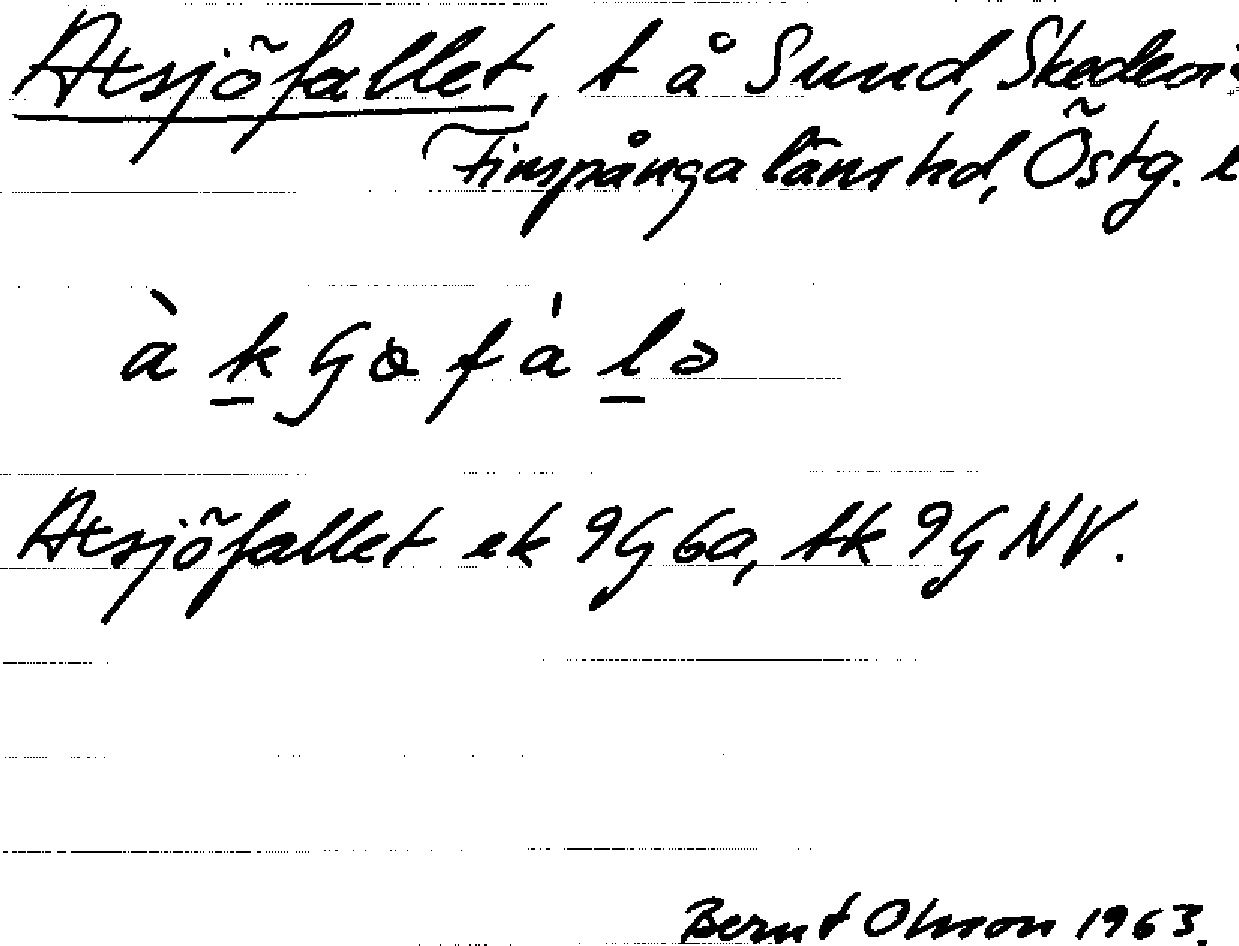 Atsjöfallet, t å Sund, Skedevi
Finspånga länshd, Östg. l
à k G ö f á l ə
Atsjöfallet ek 9G6a, tk 9G NV.
Bernt Olsson 1963.